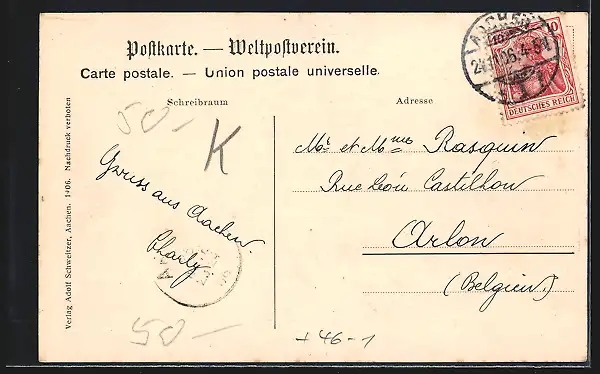 Postkarte. — Weltpostverein.
Carte postale. — Union postale universelle.
Schreibraum
Adresse
AACHEN
24.11.06. 4-5N
10
DEUTSCHES REICH
50-
K
Gruss aus Aachen.
Charly
Mr et Mmes Rasquin
Rue Léon Castilhon
Arlon
(Belgien.)
50-
+46-1
Verlag Adolf Schweitzer, Aachen. 1406. Nachdruck verboten